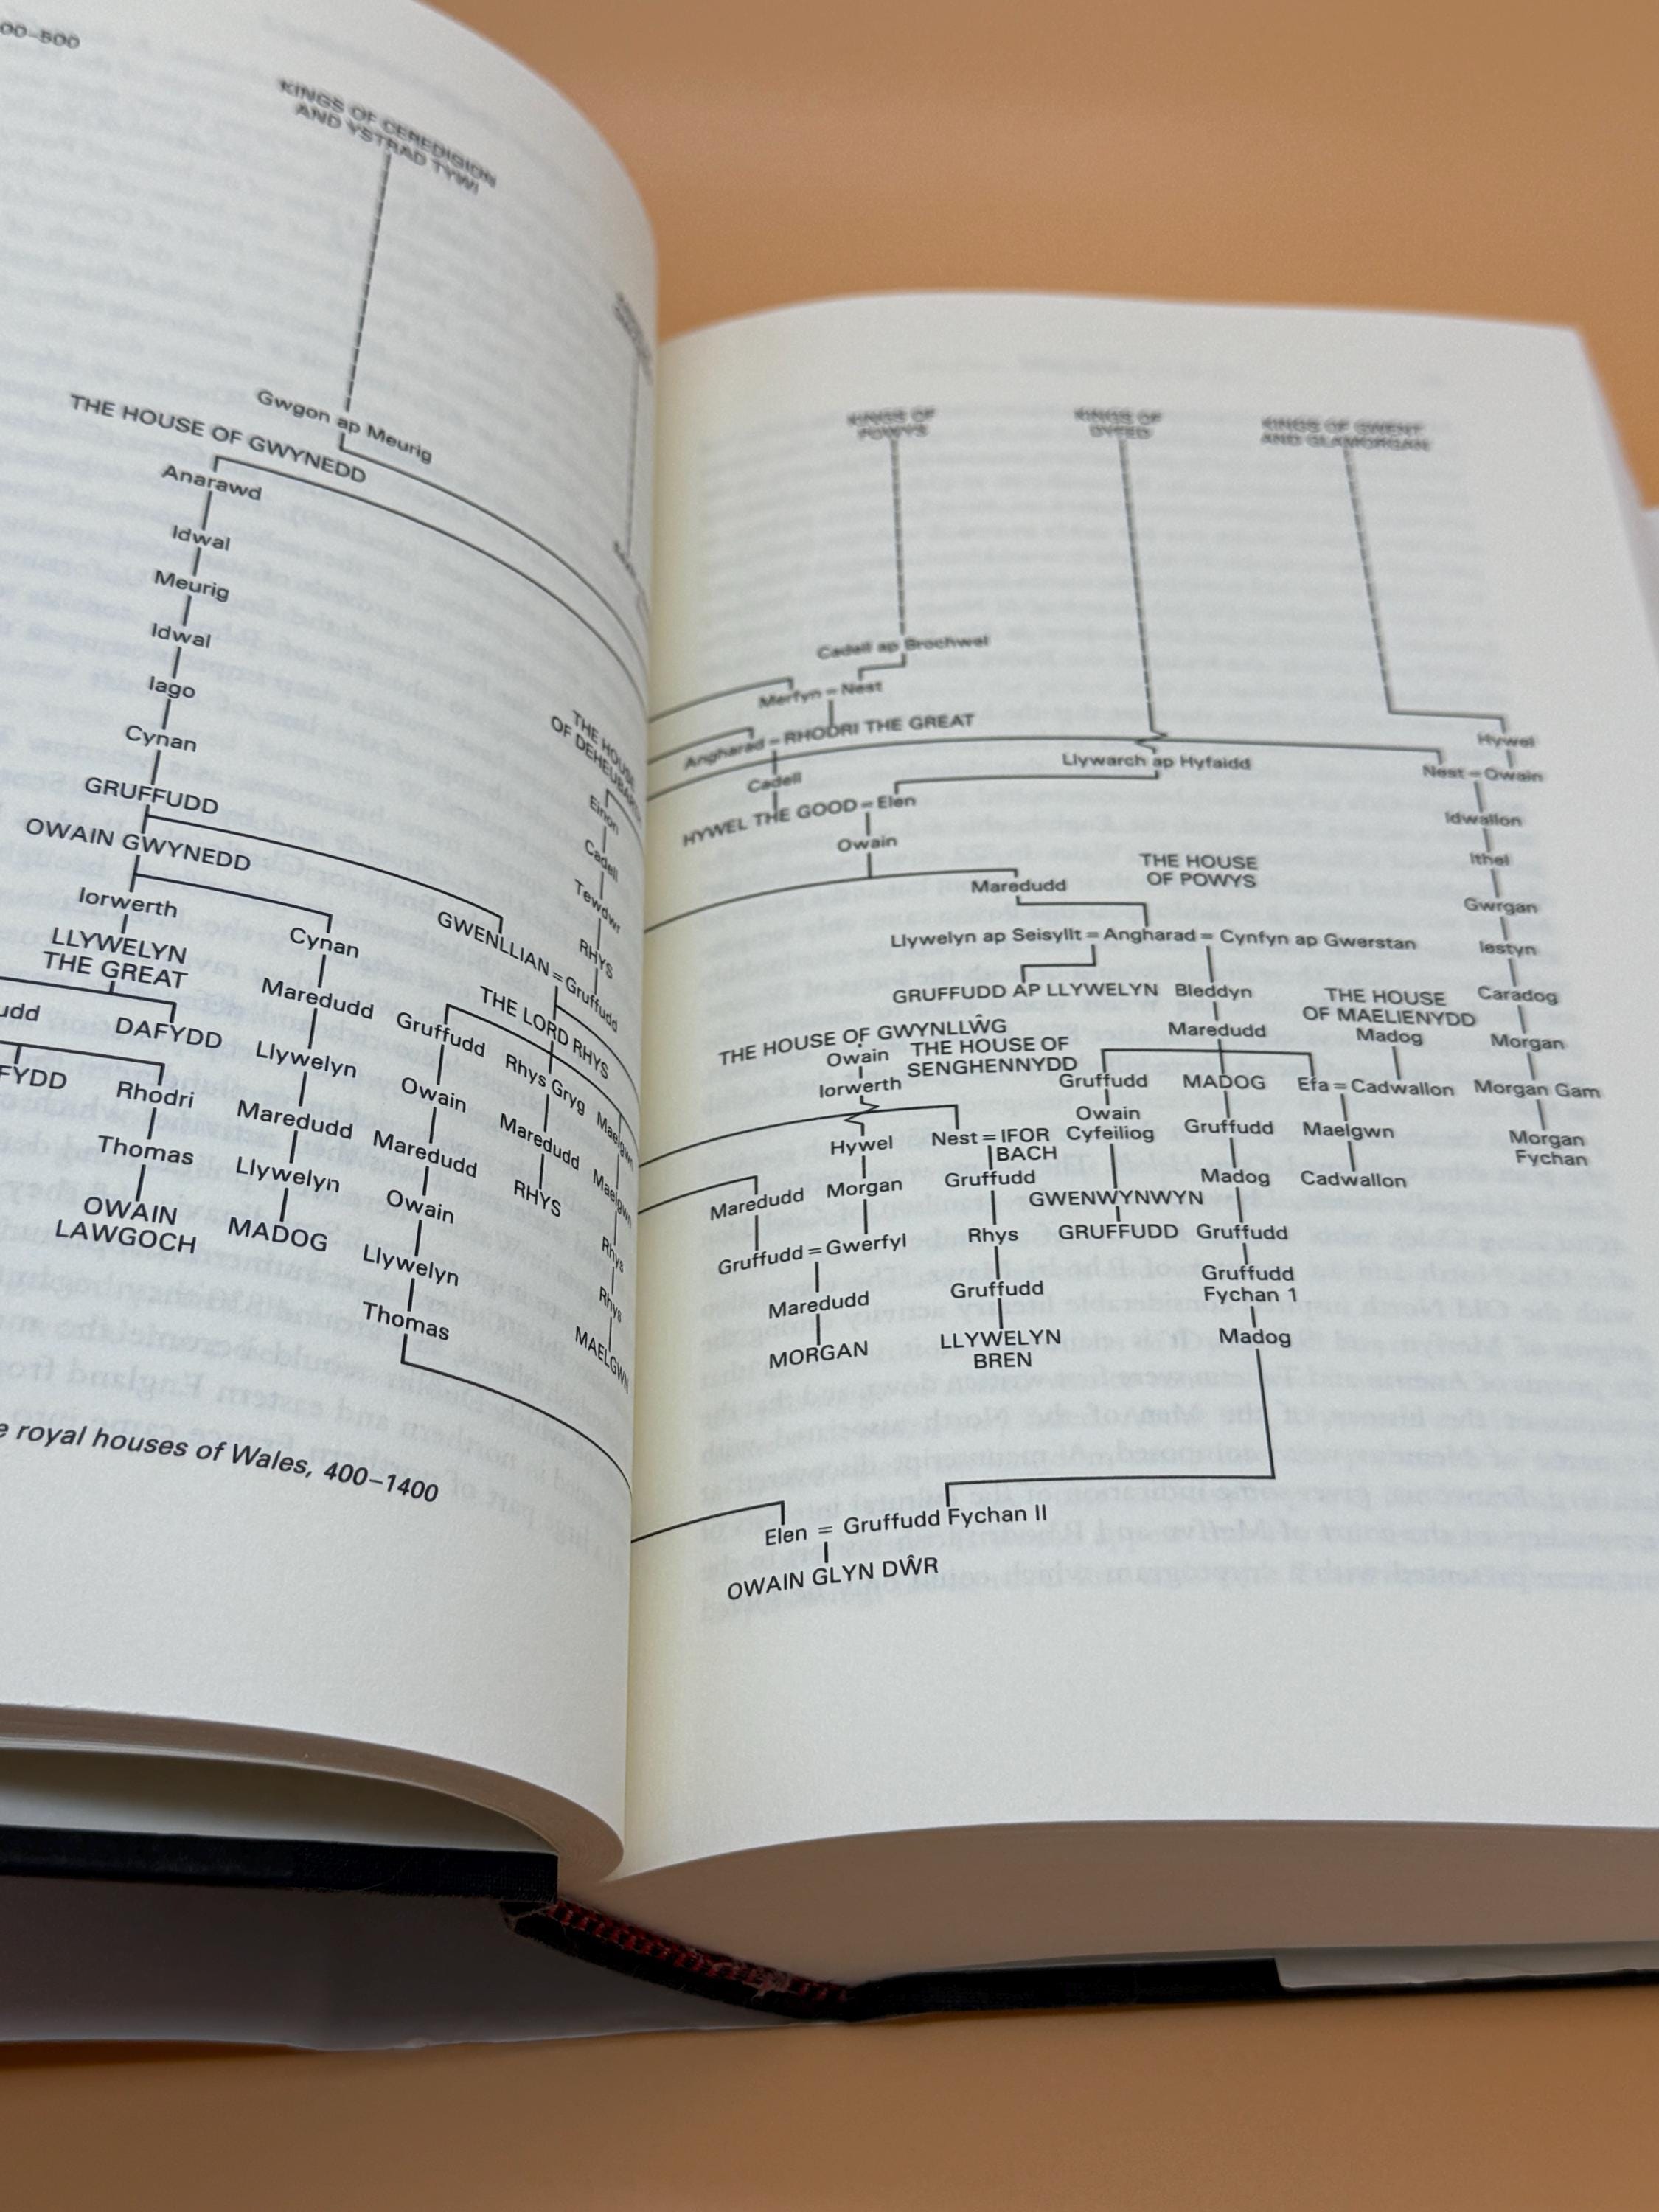 00–500
KINGS OF CEREDIGION
AND YSTRAD TYWI
Gwgon ap Meurig
THE HOUSE OF GWYNEDD
Anarawd
Idwal
Meurig
Idwal
Iago
Cynan
GRUFFUDD
OWAIN GWYNEDD
Iorwerth
Cynan
GWENLLIAN = Gruffudd
LLYWELYN
THE GREAT
Maredudd
THE LORD RHYS
udd
DAFYDD
Llywelyn
Gruffudd
Rhys Gryg
Maelgwn
FYDD
Rhodri
Maredudd
Owain
Maredudd
Maelgwn
Thomas
Llywelyn
Maredudd
RHYS
Rhys
OWAIN
LAWGOCH
MADOG
Owain
Rhys
Llywelyn
MAELGWN
Thomas
THE HOUSE
OF DEHEUBARTH
Einon
Cadell
Tewdwr
RHYS
e royal houses of Wales, 400–1400
KINGS OF
POWYS
KINGS OF
DYFED
KINGS OF GWENT
AND GLAMORGAN
Cadell ap Brochwel
Merfyn = Nest
Angharad = RHODRI THE GREAT
Hywel
Llywarch ap Hyfaidd
Nest = Owain
Cadell
HYWEL THE GOOD = Elen
Idwallon
Owain
Ithel
Maredudd
THE HOUSE
OF POWYS
Gwrgan
Llywelyn ap Seisyllt = Angharad = Cynfyn ap Gwerstan
Iestyn
GRUFFUDD AP LLYWELYN
Bleddyn
THE HOUSE
OF MAELIENYDD
Caradog
THE HOUSE OF GWYNLLŴG
Owain
THE HOUSE OF
SENGHENNYDD
Maredudd
Madog
Morgan
Iorwerth
Gruffudd
MADOG
Efa = Cadwallon
Morgan Gam
Hywel
Nest = IFOR
BACH
Owain
Cyfeiliog
Gruffudd
Maelgwn
Morgan
Fychan
Maredudd
Morgan
Gruffudd
GWENWYNWYN
Madog
Cadwallon
Gruffudd = Gwerfyl
Rhys
GRUFFUDD
Gruffudd
Maredudd
Gruffudd
Gruffudd
Fychan 1
MORGAN
LLYWELYN
BREN
Madog
Elen = Gruffudd Fychan II
OWAIN GLYN DŴR